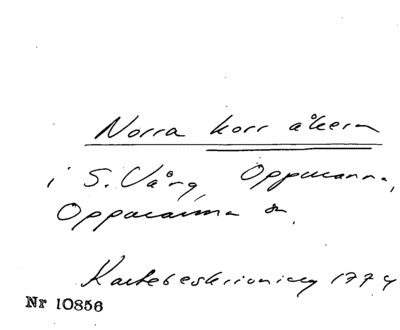 Norra korr åkern
i S. Vång, Oppmanna,
Oppmanna sn.
Kartebeskrivning 1774
Nr 10856